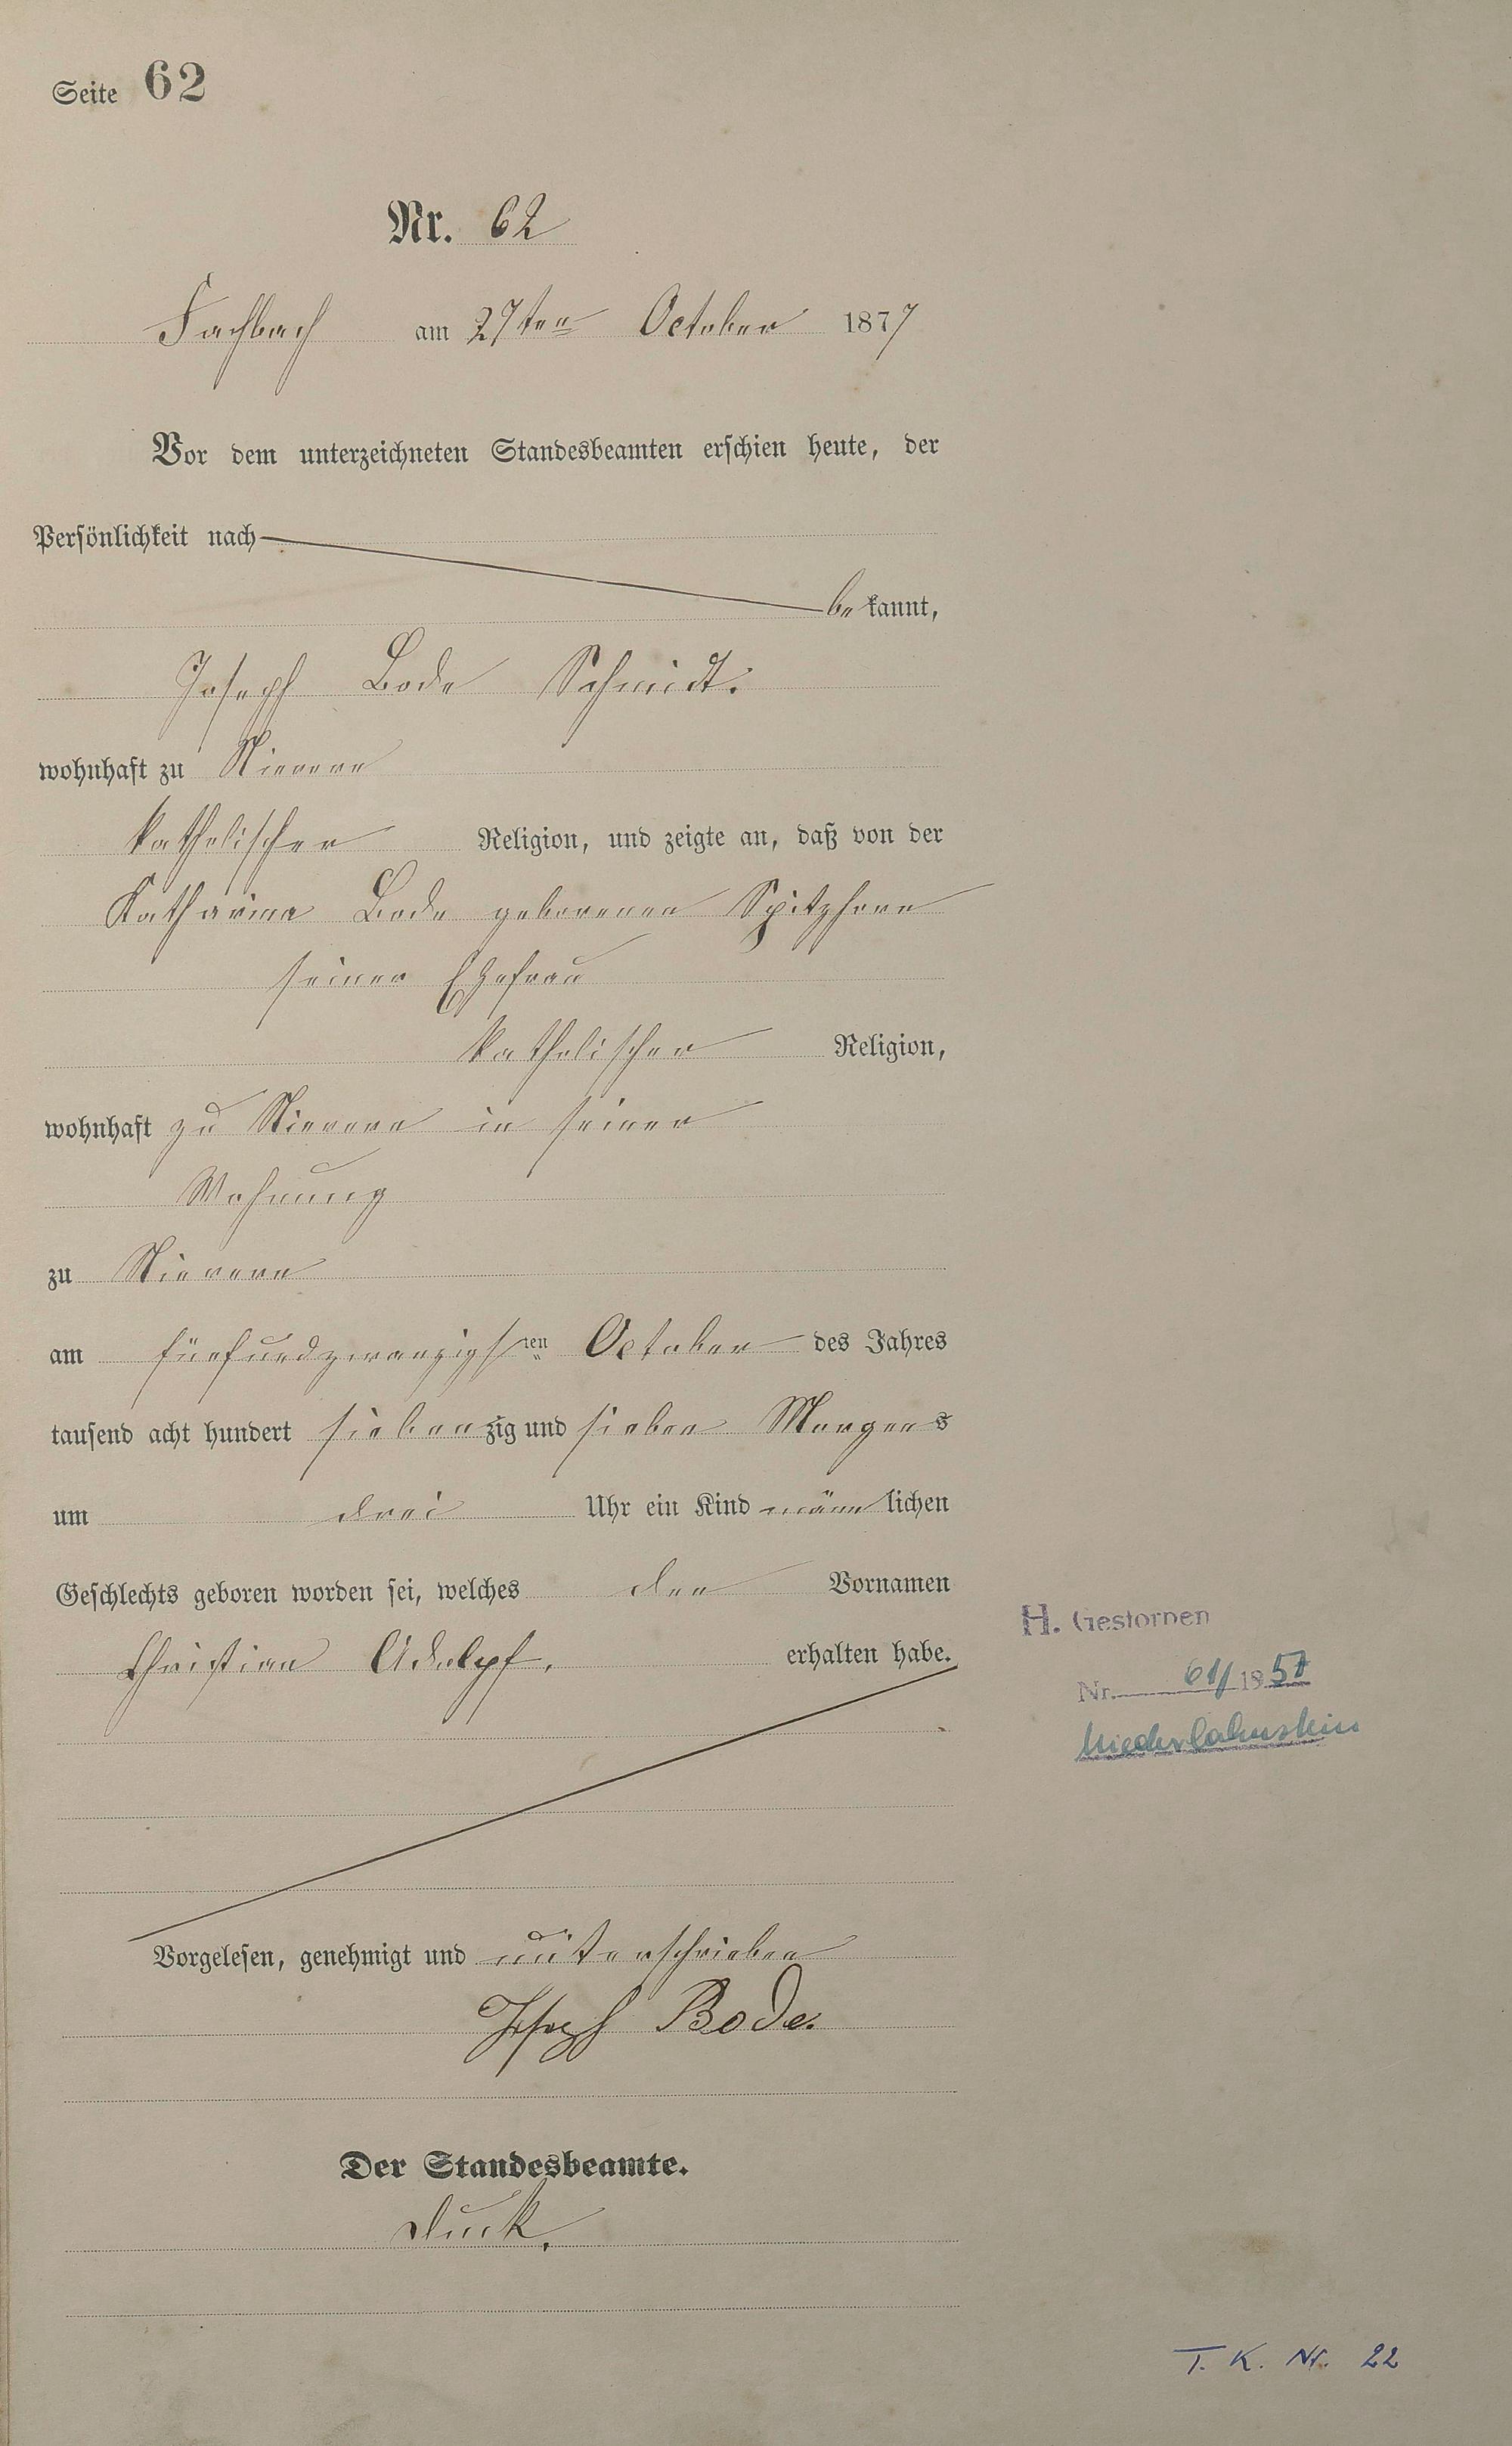 Seite 62
Nr. 62
Fachbach am 27ten October 1877
Vor dem unterzeichneten Standesbeamten erschien heute, der
Persönlichkeit nach
bekannt,
Joseph Bode Schmidt.
wohnhaft zu Nievern
katholischer Religion, und zeigte an, daß von der
Katharina Bode geborenen Spitzhorn
seiner Ehefrau
katholischer Religion,
wohnhaft zu Nievern in seiner
Wohnung
zu Nievern
am fünfundzwanzigsten October des Jahres
tausend acht hundert siebenzig und sieben Morgens
um drei Uhr ein Kind männlichen
Geschlechts geboren worden sei, welches den Vornamen
Christian Adolpf. erhalten habe.
H. Gestorben
Nr. 61/1957
Niederlahnstein
Vorgelesen, genehmigt und unterschrieben
Joseph Bode.
Der Standesbeamte.
Duck.
T. K. Nr. 22